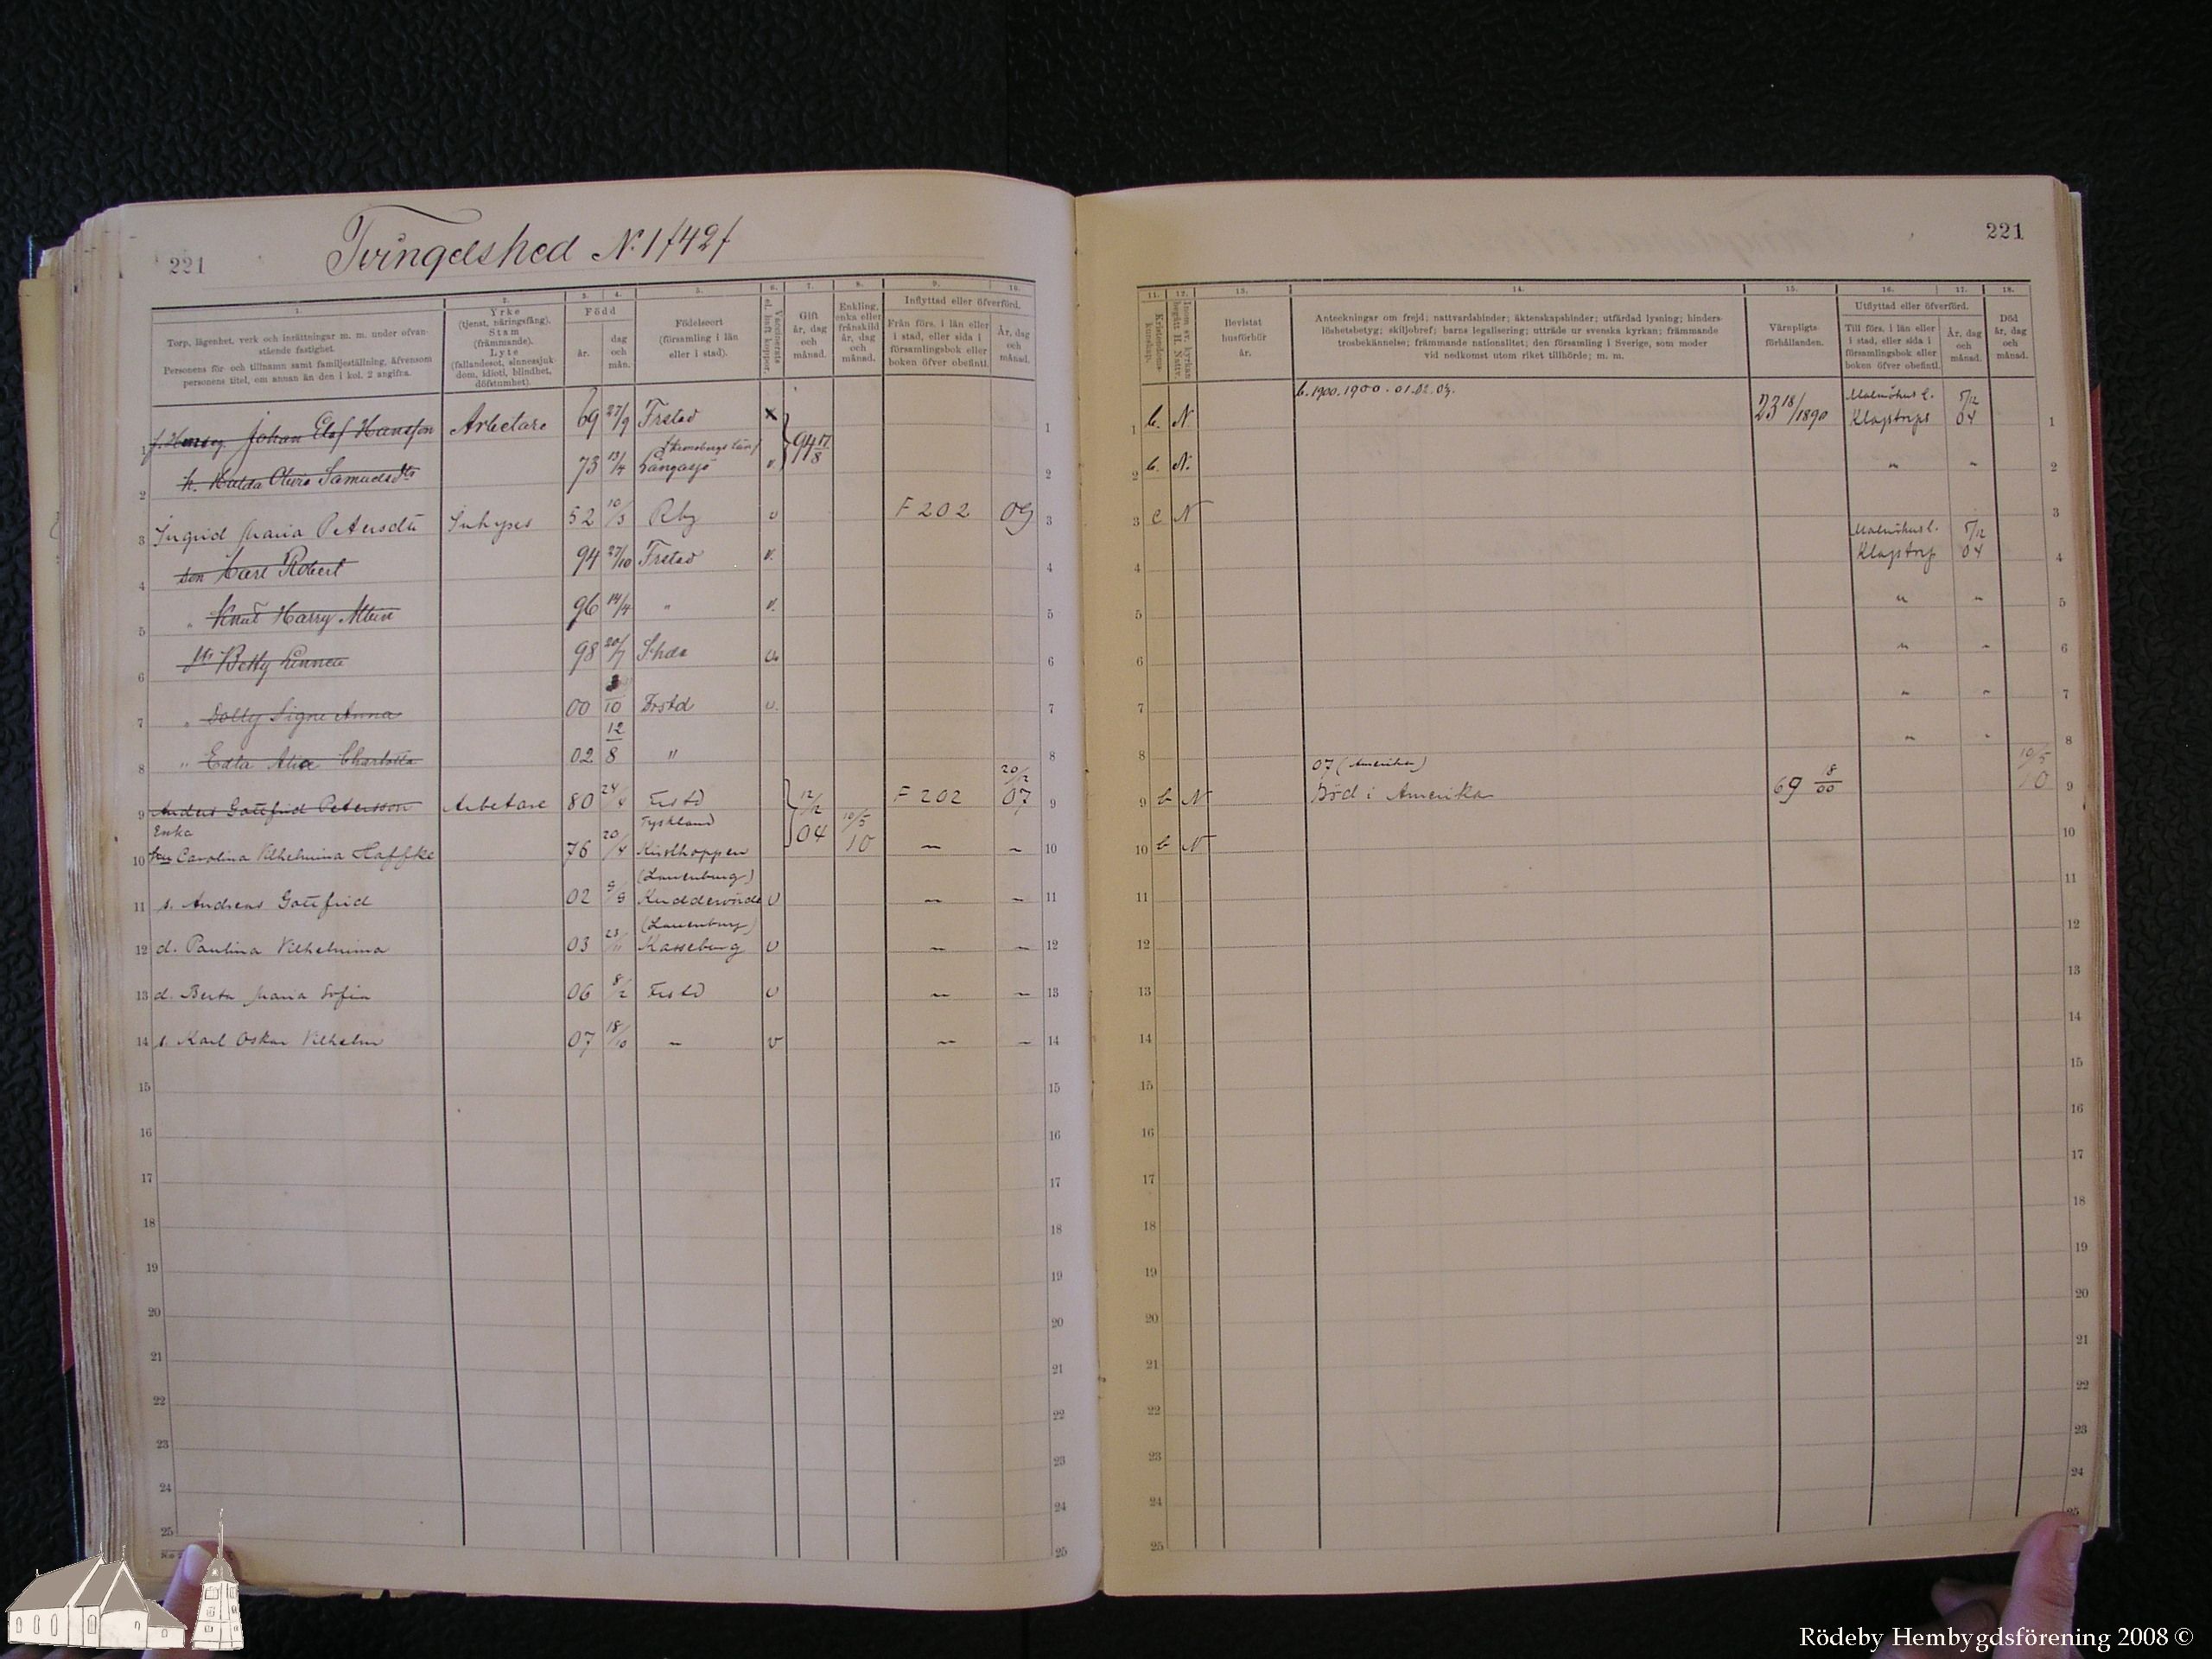 221
Tvingelshed № 1/42/
221
1. 2. 3. 4. 5. 6. 7. 8. 9. 10.
Torp, lägenhet, verk och inrättningar m. m. under ofvanstående fastighet.
Personens för- och tillnamn samt familjeställning, äfvensom personens titel, om annan än den i kol. 2 angifna.
Yrke (tjenst, näringsfång). Stam (främmande). Lyte (fallandesot, sinnessjukdom, idioti, blindhet, döfstumhet).
Född
år.
dag och mån.
Födelseort (församling i län eller i stad).
Vaccinerats el. haft koppor.
Gift år, dag och månad.
Enkling, enka eller frånskild år, dag och månad.
Inflyttad eller öfverförd.
Från förs. i län eller i stad, eller sida i församlingsbok eller boken öfver obefintl.
År, dag och månad.
11. 12. 13. 14. 15. 16. 17. 18.
Kristendomskunskap.
Inom sv. kyrkan begått H. Nattv.
Bevistat husförhör år.
Anteckningar om frejd; nattvardshinder; äktenskapshinder; utfärdad lysning; hinderslöshetsbetyg; skiljobref; barns legalisering; utträde ur svenska kyrkan; främmande trosbekännelse; främmande nationalitet; den församling i Sverige, som moder vid nedkomst utom riket tillhörde; m. m.
Värnpligtsförhållanden.
Utflyttad eller öfverförd.
Till förs. i län eller i stad, eller sida i församlingsbok eller boken öfver obefintl.
År, dag och månad.
Död år, dag och månad.
1 Johan Elof Hansson Arbetare 69 27/9 Frstad x 94 17/8 1
1 b. N b. 1900. 1900. 01. 02. 03. 23 18/1890 Malmöhus l. Klagstorps 5/12 04 1
2 h. Hulda Olivia Samuelsdtr 73 13/4 (Kronobergs län) Långasjö v. 2
2 b. N. " " 2
3 Ingrid Maria Petersdtr Inhyses 52 10/3 Rby v F 202 09 3
3 c N 3
4 son Carl Robert 94 27/10 Frstad v. 4
4 Malmöhus l. Klagstorp 5/12 04 4
5 " Knut Harry Albin 96 14/4 " v. 5
5 " " 5
6 dtr Betty Linnea 98 20/7 v. 6
6 " " 6
7 " Dolly Signe Anna 00 10 Frstd v. 7
7 " " 7
8 " Edla Alice Charlotta 02 12/8 " 8
8 " " 8
9 Anders Gottfrid Petersson Arbetare 80 24/4 Frstd 12/2 04 F 202 20/12 07 9
9 b N 07 (Amerika) Död i Amerika 69 18/00 10/5 10 9
10 Enka hu Carolina Vilhelmina Haffke 76 20/4 Tyskland 10/5 10 " " 10
10 b N 10
11 s. Andreas Gottfrid 02 9/9 (Lauenburg) Kuddewörde v " " 11
11 11
12 d. Paulina Vilhelmina 03 23/11 (Lauenburg) Kasseburg v " " 12
12 12
13 d. Berta Maria Sofia 06 8/2 Frstd v " " 13
13 13
14 s. Karl Oskar Vilhelm 07 18/10 " v " " 14
14 14
15 15 15 15
16 16 16 16
17 17 17 17
18 18 18 18
19 19 19 19
20 20 20 20
21 21 21 21
22 22 22 22
23 23 23 23
24 24 24 24
25 25 25 25
Rödeby Hembygdsförening 2008 ©